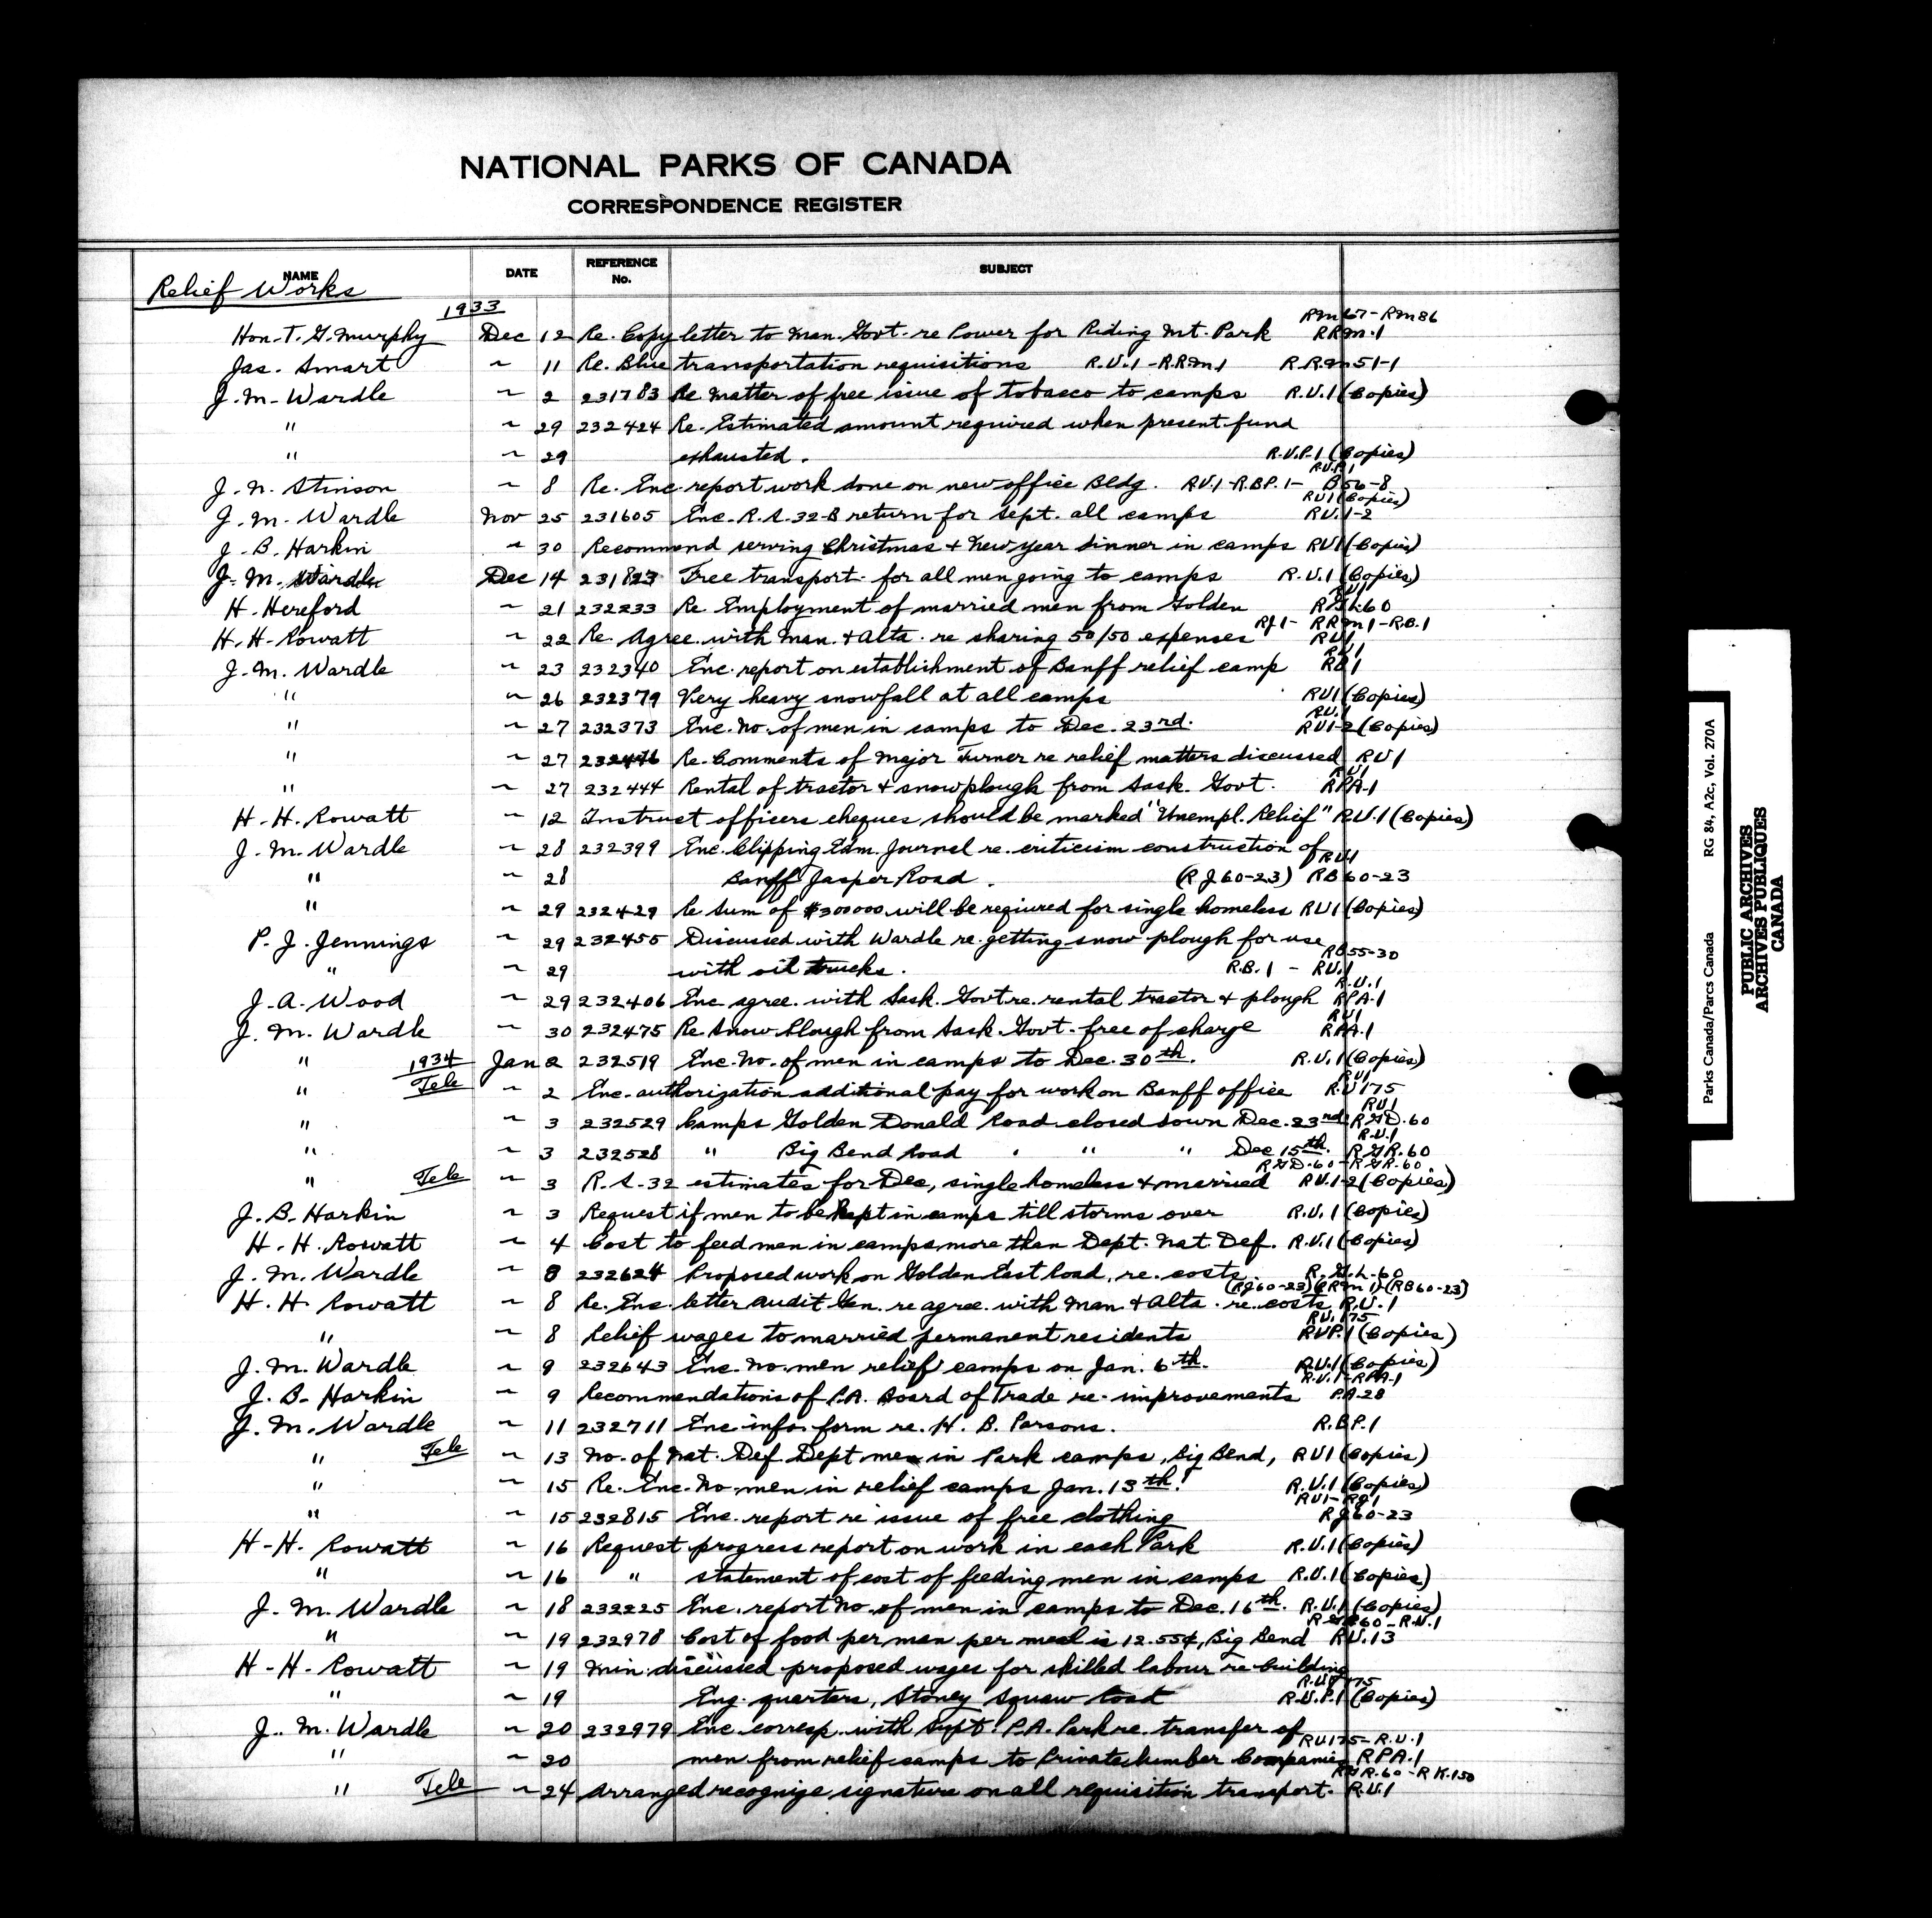 NATIONAL PARKS OF CANADA
CORRESPONDENCE REGISTER
NAME DATE REFERENCE No. SUBJECT
Relief Works
1933
Rm67-Rm86
Hon. T. G. Murphy Dec 12 Re. Copy letter to Man. Govt. re Power for Riding Mt. Park RRm.1
Jas. Smart ~ 11 Re. Blue transportation requisitions R.V.1-R.Rm1 R.Rm51-1
J. M. Wardle ~ 2 231783 Re Matter of free issue of tobacco to camps R.V.1 (Copies)
" ~ 29 232424 Re. Estimated amount required when present fund
" ~ 29 exhausted. R.V.P.1 (Copies)
R.V.P.1
J. N. Stinson ~ 8 Re. Enc. report work done on new office Bldg. RV.1-R.BP.1- B56-8
RV1 (Copies)
J. M. Wardle Nov 25 231605 Enc. R.S. 32-B return for Sept. all camps RV.1-2
J. B. Harkin ~ 30 Recommend serving Christmas & New year dinner in camps RV1 (Copies)
J. M. Wardle Dec 14 231823 Free transport. for all men going to camps R.V.1 (Copies)
RV1
H. Hereford ~ 21 232233 Re Employment of married men from Golden RGL.60
RJ1- RRm1-R.B.1
H. H. Rowatt ~ 22 Re. Agree. with Man. & Alta. re sharing 50/50 expenses RV1
RV1
J. M. Wardle ~ 23 232340 Enc. report on establishment of Banff relief camp RB1
" ~ 26 232379 Very heavy snowfall at all camps RV1 (Copies)
RV.1
" ~ 27 232373 Enc. No. of men in camps to Dec. 23rd. RV1-2 (Copies)
" ~ 27 232446 Re. Comments of Major Turner re relief matters discussed RV1
RV1
" ~ 27 232444 Rental of tractor & snowplough from Sask. Govt. RPA-1
H. H. Rowatt ~ 12 Instruct officers cheques should be marked "Unempl. Relief" R.V.1 (Copies)
J. M. Wardle ~ 28 232399 Enc. Clipping Edm. Journal re. criticism construction of RV1
" ~ 28 Banff Jasper Road. (RJ60-23) RB60-23
" ~ 29 232429 Re Sum of $300000 will be required for single homeless RV1 (Copies)
P. J. Jennings ~ 29 232455 Discussed with Wardle re. getting snow plough for use
RB55-30
" ~ 29 with oil trucks. R.B.1 - RV.1
R.V.1
J. A. Wood ~ 29 232406 Enc agree. with Sask. Govt re. rental tractor & plough RPA-1
RV1
J. M. Wardle ~ 30 232475 Re Snow Plough from Sask. Govt. free of charge RPA.1
" 1934 Jan 2 232519 Enc. No. of men in camps to Dec. 30th. R.V.1 (Copies)
RV1
" Tele ~ 2 Enc. authorization additional pay for work on Banff office R.V175
RV1
" ~ 3 232529 Camps Golden Donald Road closed down Dec. 23rd RGD.60
R.V.1
" ~ 3 232528 " Big Bend Road " " " Dec 15th. RGR.60
RGD.60-RGR.60
" Tele ~ 3 R.S-32 estimates for Dec, single homeless & married RV.1-2 (Copies)
J. B. Harkin ~ 3 Request if men to be kept in camps till storms over R.V.1 (Copies)
H. H. Rowatt ~ 4 Cost to feed men in camps more than Dept. Nat. Def. R.V.1 (Copies)
J. M. Wardle ~ 8 232624 Proposed work on Golden East Road, re. costs R.G.L-60
(RJ60-23)(RRm1)-(RB60-23)
H. H. Rowatt ~ 8 Re. Enc. letter Audit Gen. re agree. with Man & Alta. re. costs R.V.1
RV.175
" ~ 8 Relief wages to married permanent residents RVP.1 (Copies)
J. M. Wardle ~ 9 232643 Enc. No. men relief camps on Jan. 6th. R.V.1 (Copies)
R.V.1-RPA-1
J. B. Harkin ~ 9 Recommendations of P.A. Board of Trade re. improvements PA-28
J. M. Wardle ~ 11 232711 Enc. info. form re. H. B. Parsons. R.BP.1
" Tele ~ 13 No. of Nat. Def. Dept men in Park camps, Big Bend, RV1 (Copies)
" ~ 15 Re. Enc. No men in relief camps Jan. 13th. R.V.1 (Copies)
RV1-RJ1
" ~ 15 232815 Enc. report re issue of free clothing RJ60-23
H. H. Rowatt ~ 16 Request progress report on work in each Park R.V.1 (Copies)
" ~ 16 " statement of cost of feeding men in camps R.V.1 (Copies)
J. M. Wardle ~ 18 232225 Enc. report No. of men in camps to Dec. 16th. R.V.1 (Copies)
RGR60-R.V.1
" ~ 19 232978 Cost of food per man per meal is 12.55¢, Big Bend RV.13
H. H. Rowatt ~ 19 Min. discussed proposed wages for skilled labour re building
R.V.P175
" ~ 19 Eng. quarters, Stoney Squaw road R.V.P.1 (Copies)
J. M. Wardle ~ 20 232979 Enc. corresp. with Supt. P.A. Park re. transfer of
RV175-R.V.1
" ~ 20 men from relief camps to Private Lumber Companies RPA.1
RGR.60-RK.150
" Tele ~ 24 Arranged recognize signature on all requisition transport. R.V.1
Parks Canada/Parcs Canada RG 84, A2c, Vol. 270A
PUBLIC ARCHIVES
ARCHIVES PUBLIQUES
CANADA